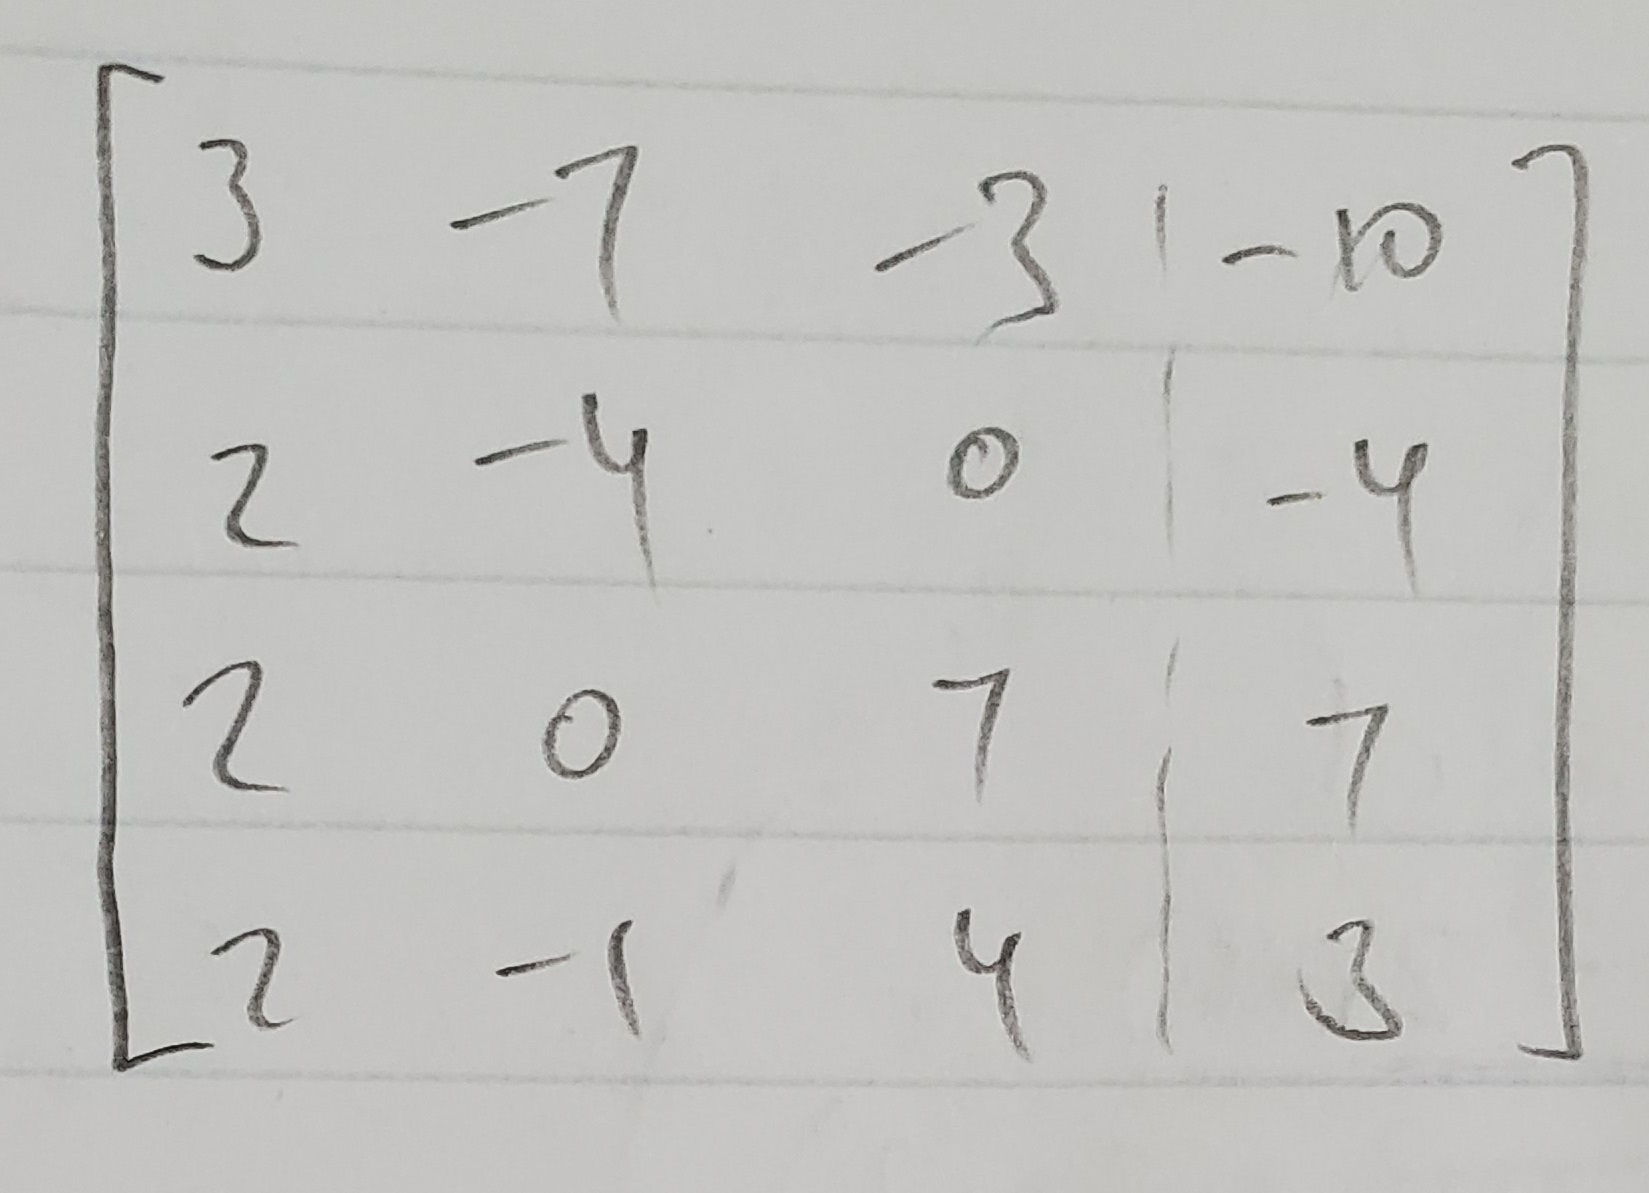 3 -7 -3 | -10
2 -4 0 | -4
2 0 7 | 7
2 -1 4 | 3